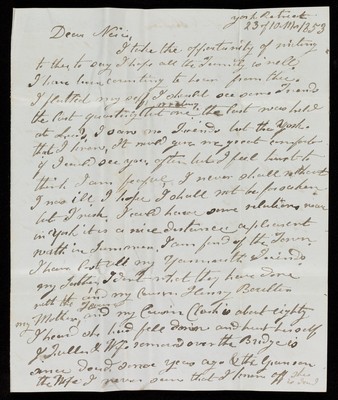 York Retreat
23 of 10 Mo 1853
Dear Niece,
I take the opportunity of writing
to thee to say I hope all the Family is well,
I have been wanting to hear from thee
I flatted my self I should see some Friends
the last quarterly meeting but one the last was held
at Leeds, I saw no Friends but the York
that I knew, It would give me great comfort
if I could see you often but I feel hurt to
think I am fearful I never shall without
I was ill, I hope I shall not be
but I wish I could have some relations near
in York it is a nice distance a pleasent
walk in Summer, I am fond of the Town
I have lost all my Yarmouth Friends
my Father I don't what they have done
with the and my Cousin Henry
my Mother, and my Cousin is about eighty
I heard she had fell down and hurt herself
J Fuller & Wife removed over the Bridge is
since dead some years ago &
the Wife I never seen that I know off she
is dead